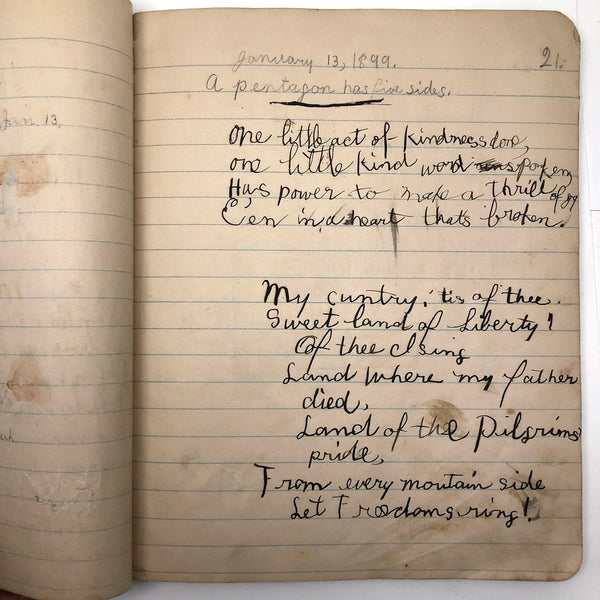 Jan. 13,
January 13, 1899.
21.
A pentagon has five sides.
One little act of kindness done,
one little kind word spoken,
Has power to make a thrill of joy
E'en in a heart that's broken.
My cuntry, 'tis of thee.
Sweet land of Liberty!
Of thee I sing
Land where my father
died,
Land of the Pilgrims'
pride,
From every moutain side
Let Freedoms ring!